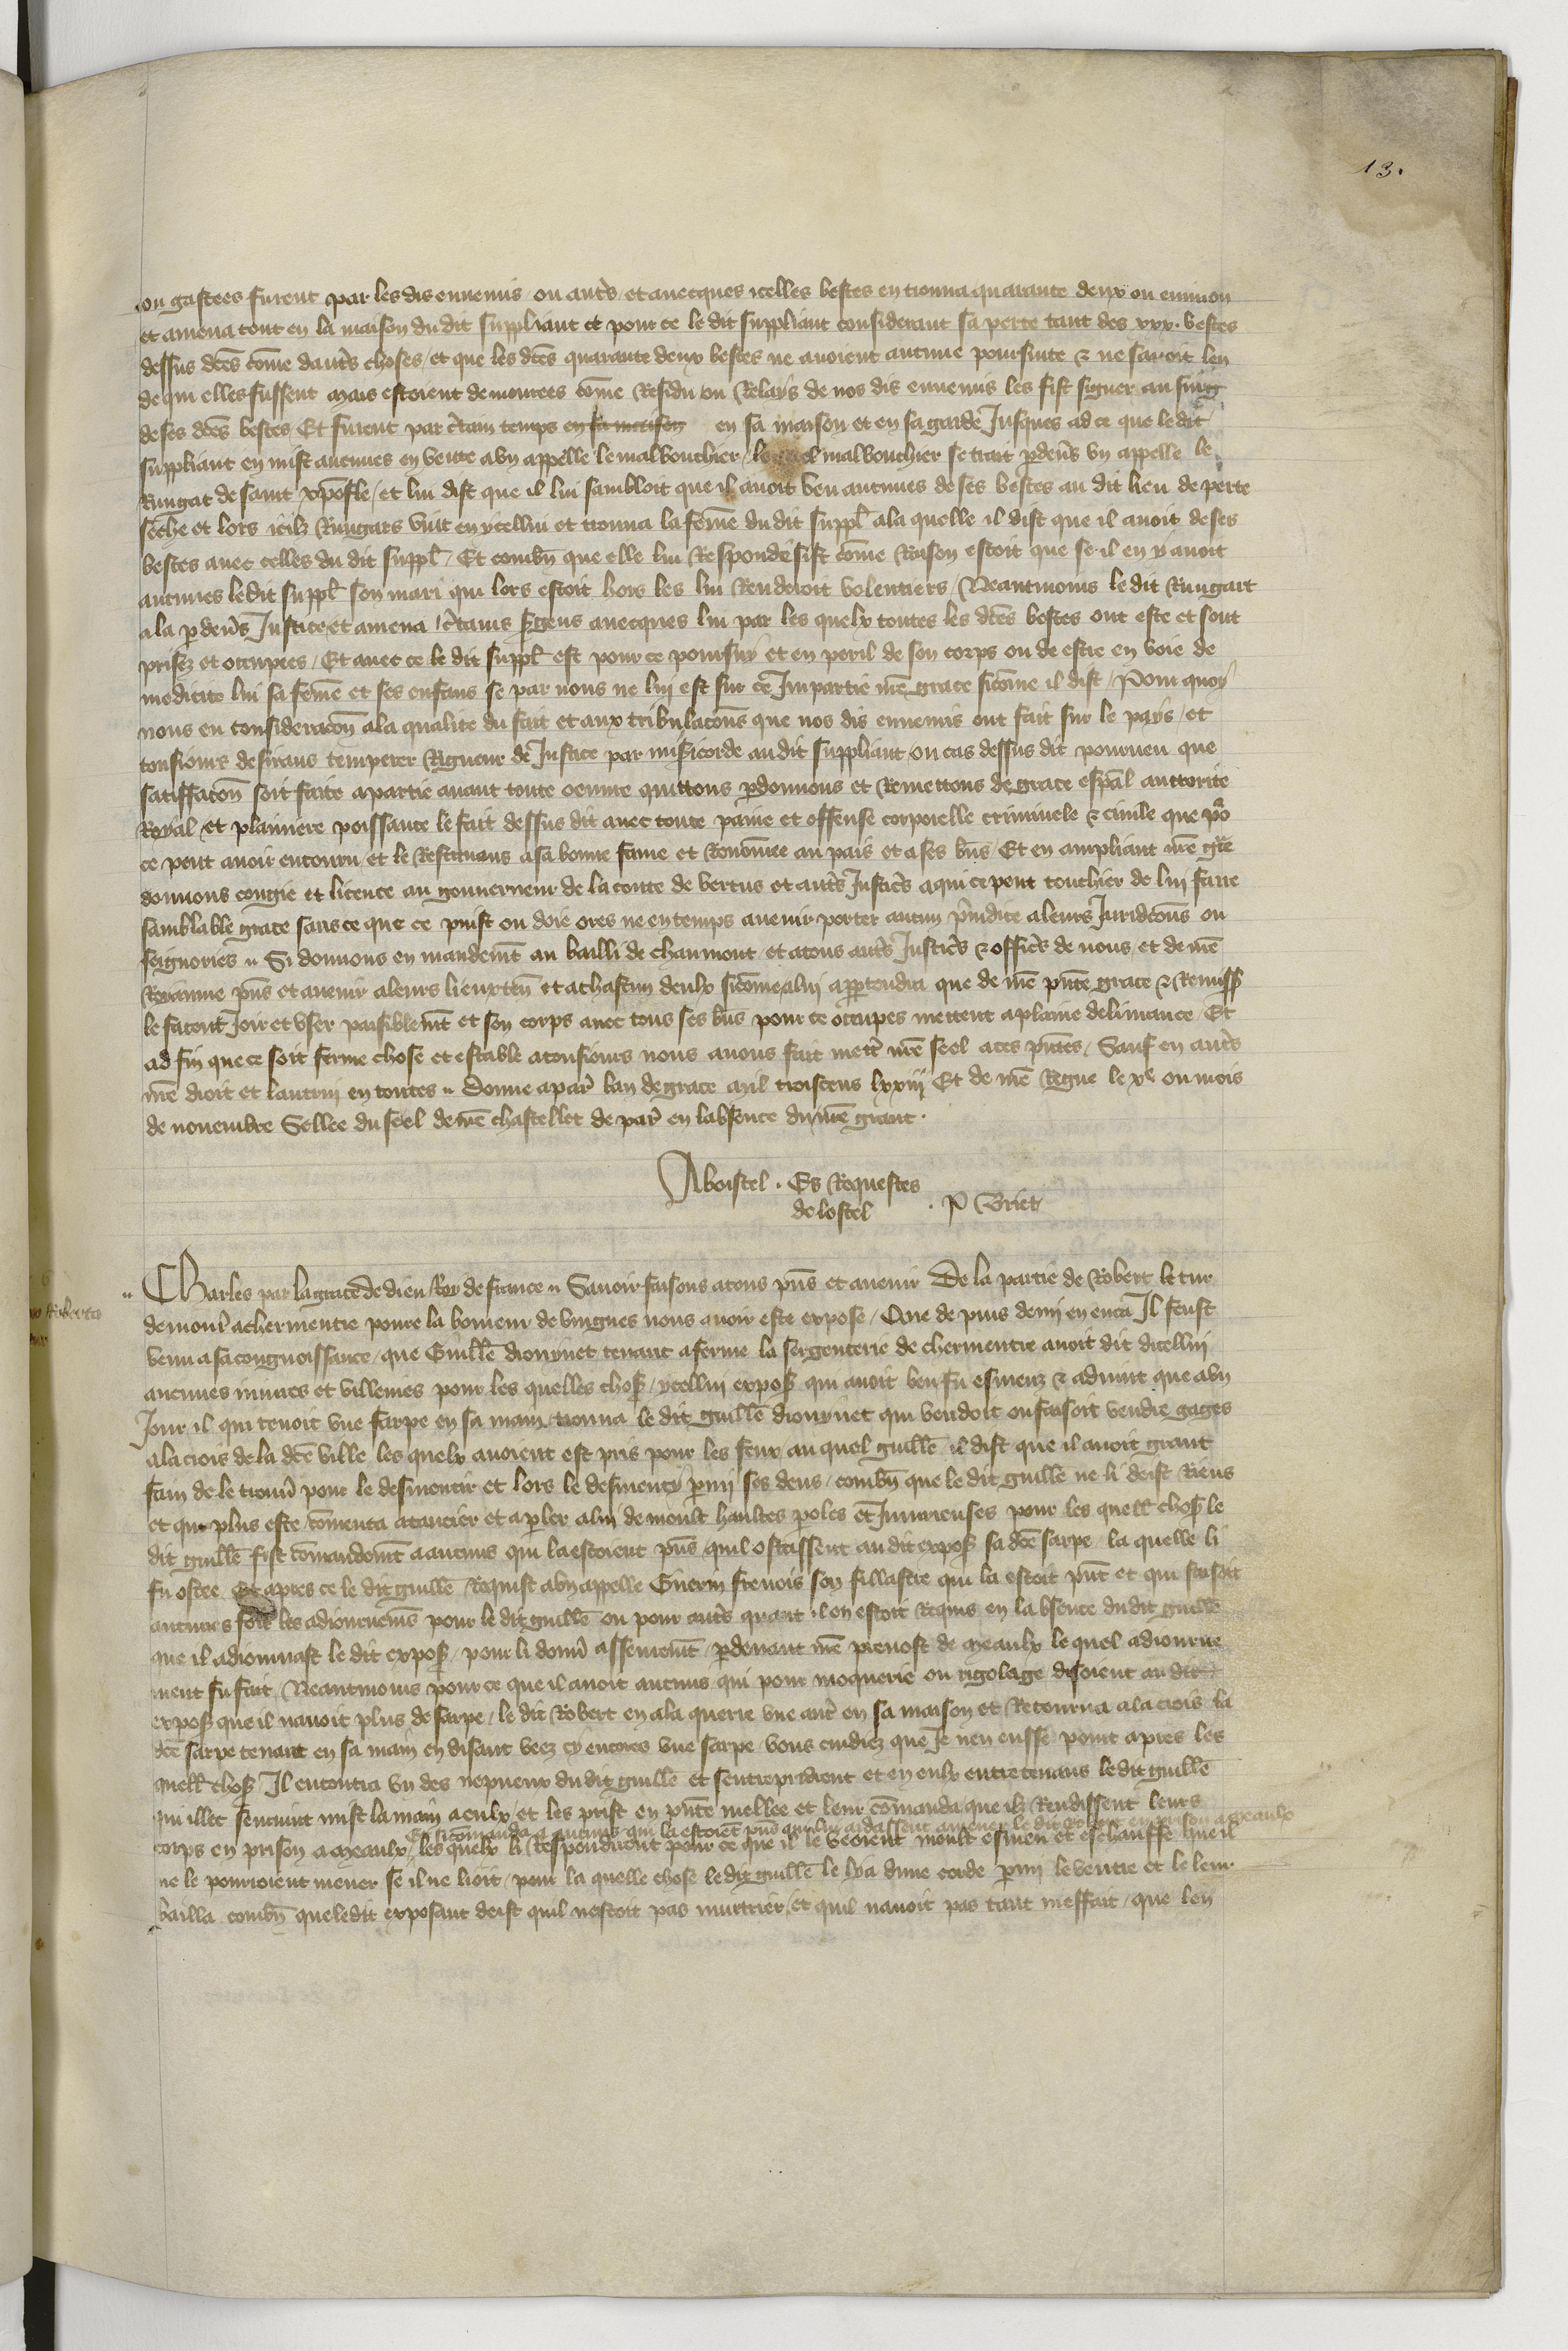 13.
ou gastees furent par les dis ennemis ou autᵉs et avecques icelles bestes en trouva quarante deux ou environ
et amena tout en la maison du dit suppliant et pour ce le dit suppliant considerant sa perte tant des xxx. bestes
dessus dc̄es cōme dautᵉs choses / et que les dc̄es quarante deux bestes ne avoient aucune poursuite & ne savoit len
de qui elles fussent mais estoient demourees cōme Residu ou Relays de nos dis ennemis les fist signer au sing
de ses dc̄es bestes Et furent par c̄tain temps en sa maison en sa maison et en sa garde Jusques ad ce que le dit
suppliant en mist aucunes en vente a un appelle le malbouchier / le quel malbouchier se trait p̱devᵉs un appelle le
Rungat de saint xp̄ofle / et lui dist que il lui sambloit que il avoit veu aucunes de ses bestes au dit lieu de perte
seche et lors icilz Rungats vint en ycellui et trouva la fēme du dit suppl̄ a la quelle il dist que il avoit de ses
bestes avec celles du dit suppl̄ / Et combn̄ que elle lui Respondesist cōme Raison estoit que se il en y avoit
aucunes le dit suppl̄ son mari qui lors estoit hors les lui Renderoit volentiers / Neantmoins le dit Rungart
ala p̱devᵉs Justice et amena c̄tains s̄gens avecques lui par les quelx toutes les dc̄es bestes ont este et sont
prises et occupees / Et avec ce le dit suppl̄ est pour ce poursuy et en peril de son corps ou de estre en voie de
medicite lui sa fēme et ses enfans se par nous ne lui est sur ce Impartie nr̄e grace sicōme il dist / Pour quoy
nous en consideracōn a la qualite du fait et aux tribulacōns que nos dis ennemis ont fait sur le pays / et
tousiours desirans temperer Rigueur de Justice par misēicorde au dit suppliant ou cas dessus dit pourveu que
satiffacōn soit faite a partie avant toute oeuvre quittons p̱donnons et Remettons de grace esp̄al auctorite
Royal et plainiere poissance le fait dessus dit avec toute paine et offense corporelle criminele & civile que po͛
ce peut avoir encouru et le Restituons a sa bonne fame et Renōmee au pais et a ses bn̄s / Et en ampliant nr̄e gr̄e
donnons congie et licence au gouverneur de la conte de vertus et autᵉs Justicᵉs a qui ce peut touchier de lui faire
samblable grace sans ce que ce puist ou doie ores ne en temps avenir porter aucun p̄iudice a leurs Juridcōns ou
seignories .. Si donnons en mandemt̄ au bailli de chaumont et a tous autᵉs Justicᵉs & officᵉs de nous / et de nr̄e
Royaume pn̄s et avenir a leurs lieuxten̄ et a chascun deulx sicōme a lui appartendra que de nr̄e pn̄te grace & Remiss̄
le facent Joir et user paisiblemt̄ et son corps avec tous ses bn̄s pour ce occupes mettent a plaine delivrance / Et
ad fin que ce soit ferme chose et estable a tousiours nous avons fait mettr̄ nr̄e seel a ces pn̄tes / Sauf en autᵉs
nr̄e droit et lautrui en toutes .. Donne a par̄ lan de grace mil troiscens lxxiij Et de nr̄e Regne le xᵉ ou mois
de novembre Sellee du seel de nr̄e chastellet de par̄ en labsence du nr̄e grant .
Aboistel . Es Requestes
de lostel . P Briet
Roberto
.. Charles par la grace de dieu Roy de france .. Savoir faisons a tous pn̄s et avenir De la partie de Robert le tur
demour̄ a chermentre povre laboureur de vingnes nous avoir este expose / Que de puis demi en enca Il feust
venu a sa congnoissance / que Guill̄e dionynet tenant a ferme la sergenterie de chermentre avoit dit dicellui
aucunes iniures et villenies pour les quelles chos̄ / ycellui expos̄ qui avoit beu fu esmeuz & advint que a un
Jour il qui tenoit une sarpe en sa main / trouva le dit guill̄e dionynet qui vendoit ou faisoit vendre gages
a la crois de la dc̄e ville les quelx avoient est pris pour les feux / au quel guill̄e il dist que il avoit grant
fain de le trouv̄ pour le desmentir et lors le desmenty p̱mi ses dens / combn̄ que le dit guill̄e ne li deist Riens
et qui plus este / cōmenca a tancier et a p̱ler a lui de moult haultes p̱oles et Iniurieuses pour les quell̄ chos̄ le
dit guill̄e fist cōmandemt̄ a aucuns qui la estoient pn̄s quil ostassent au dit expos̄ sa dc̄e sarpe / la quelle li
fu ostee Et apres ce le dit guill̄e Requist a un appelle Guerin frenois son fillastre qui la estoit pn̄t et qui faisoit
aucunes fois les adiournemēs pour le dit guill̄e ou pour autᵉs quant il en estoit Requis en labsence du dit guill̄e
que il adiournast le dit expos̄ / pour li donn̄ assemnt̄ / p̱devant nr̄e prevost de meaulx le quel adiourne
ment fu fait / Neantmoins pour ce que il avoit aucuns qui pour moquerie ou rigolage disoient au dit
expos̄ que il navoit plus de sarpe / le dit Robert en ala querir une autᵉ en sa maison et Retourna a la crois la
dc̄e sarpe tenant en sa main en disant veez cy encores une sarpe / vous cuidiez que Je nen eusse point apres les
quell̄ chos̄ Il encontra un des nepveux du dit guill̄e et sentreprīdrent et en eulx entretenans le dit guill̄e
qui illec seurvint mist la main a eulx / et les prist en pn̄te mellee et leur cōmanda que ilz Rendissent leurs
Et si cōmanda a aucuns qui la estoient pn̄s que lui aidassent amener le dit Robert en prison a meaulx
corps en prison a meaulx / les quelx li Respondirent pour ce que il le veoient moult esmeu et eschauffe que il
ne le pourroient mener se il ne lioit / pour la quelle chose le dit guill̄e le lya dune corde p̱mi le ventre et le leur
bailla combn̄ que le dit exposant deist quil nestoit pas murtrier / et quil navoit pas tant meffait / que len